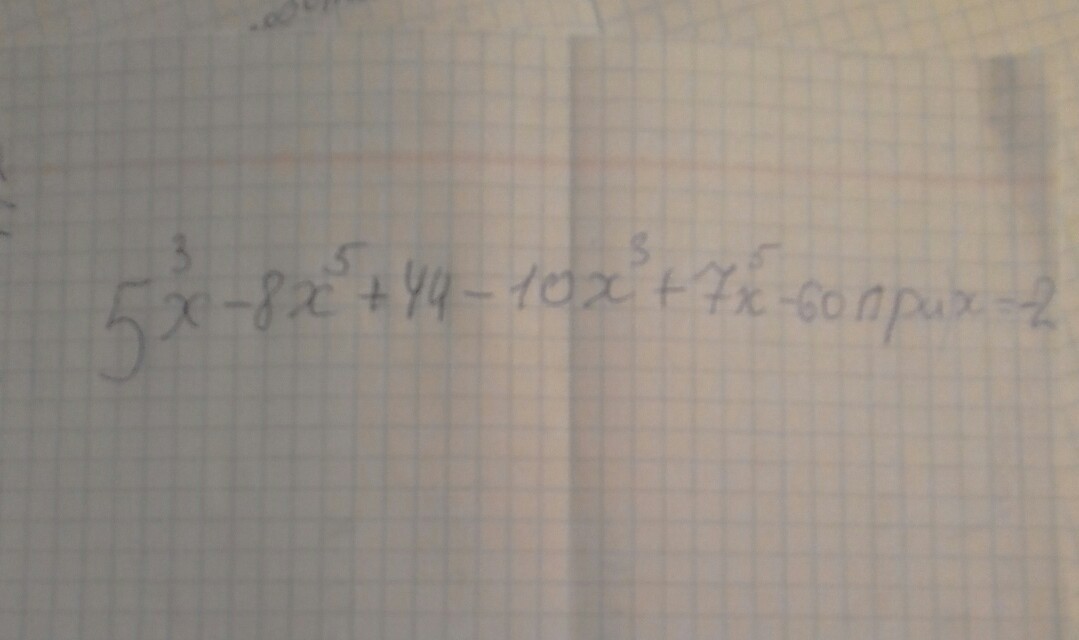 5x³ - 8x⁵ + 44 - 10x³ + 7x⁵ - 60 при x = -2